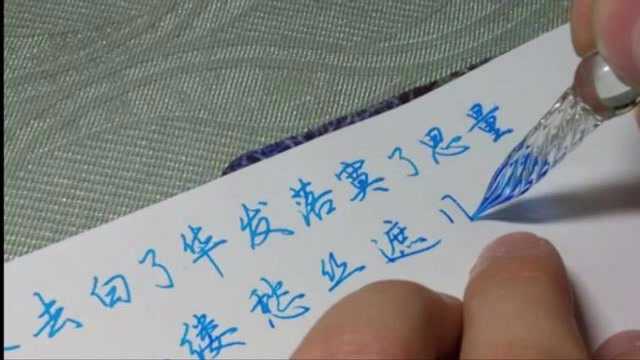 去白了华发落寞了思量
缕愁丝遮